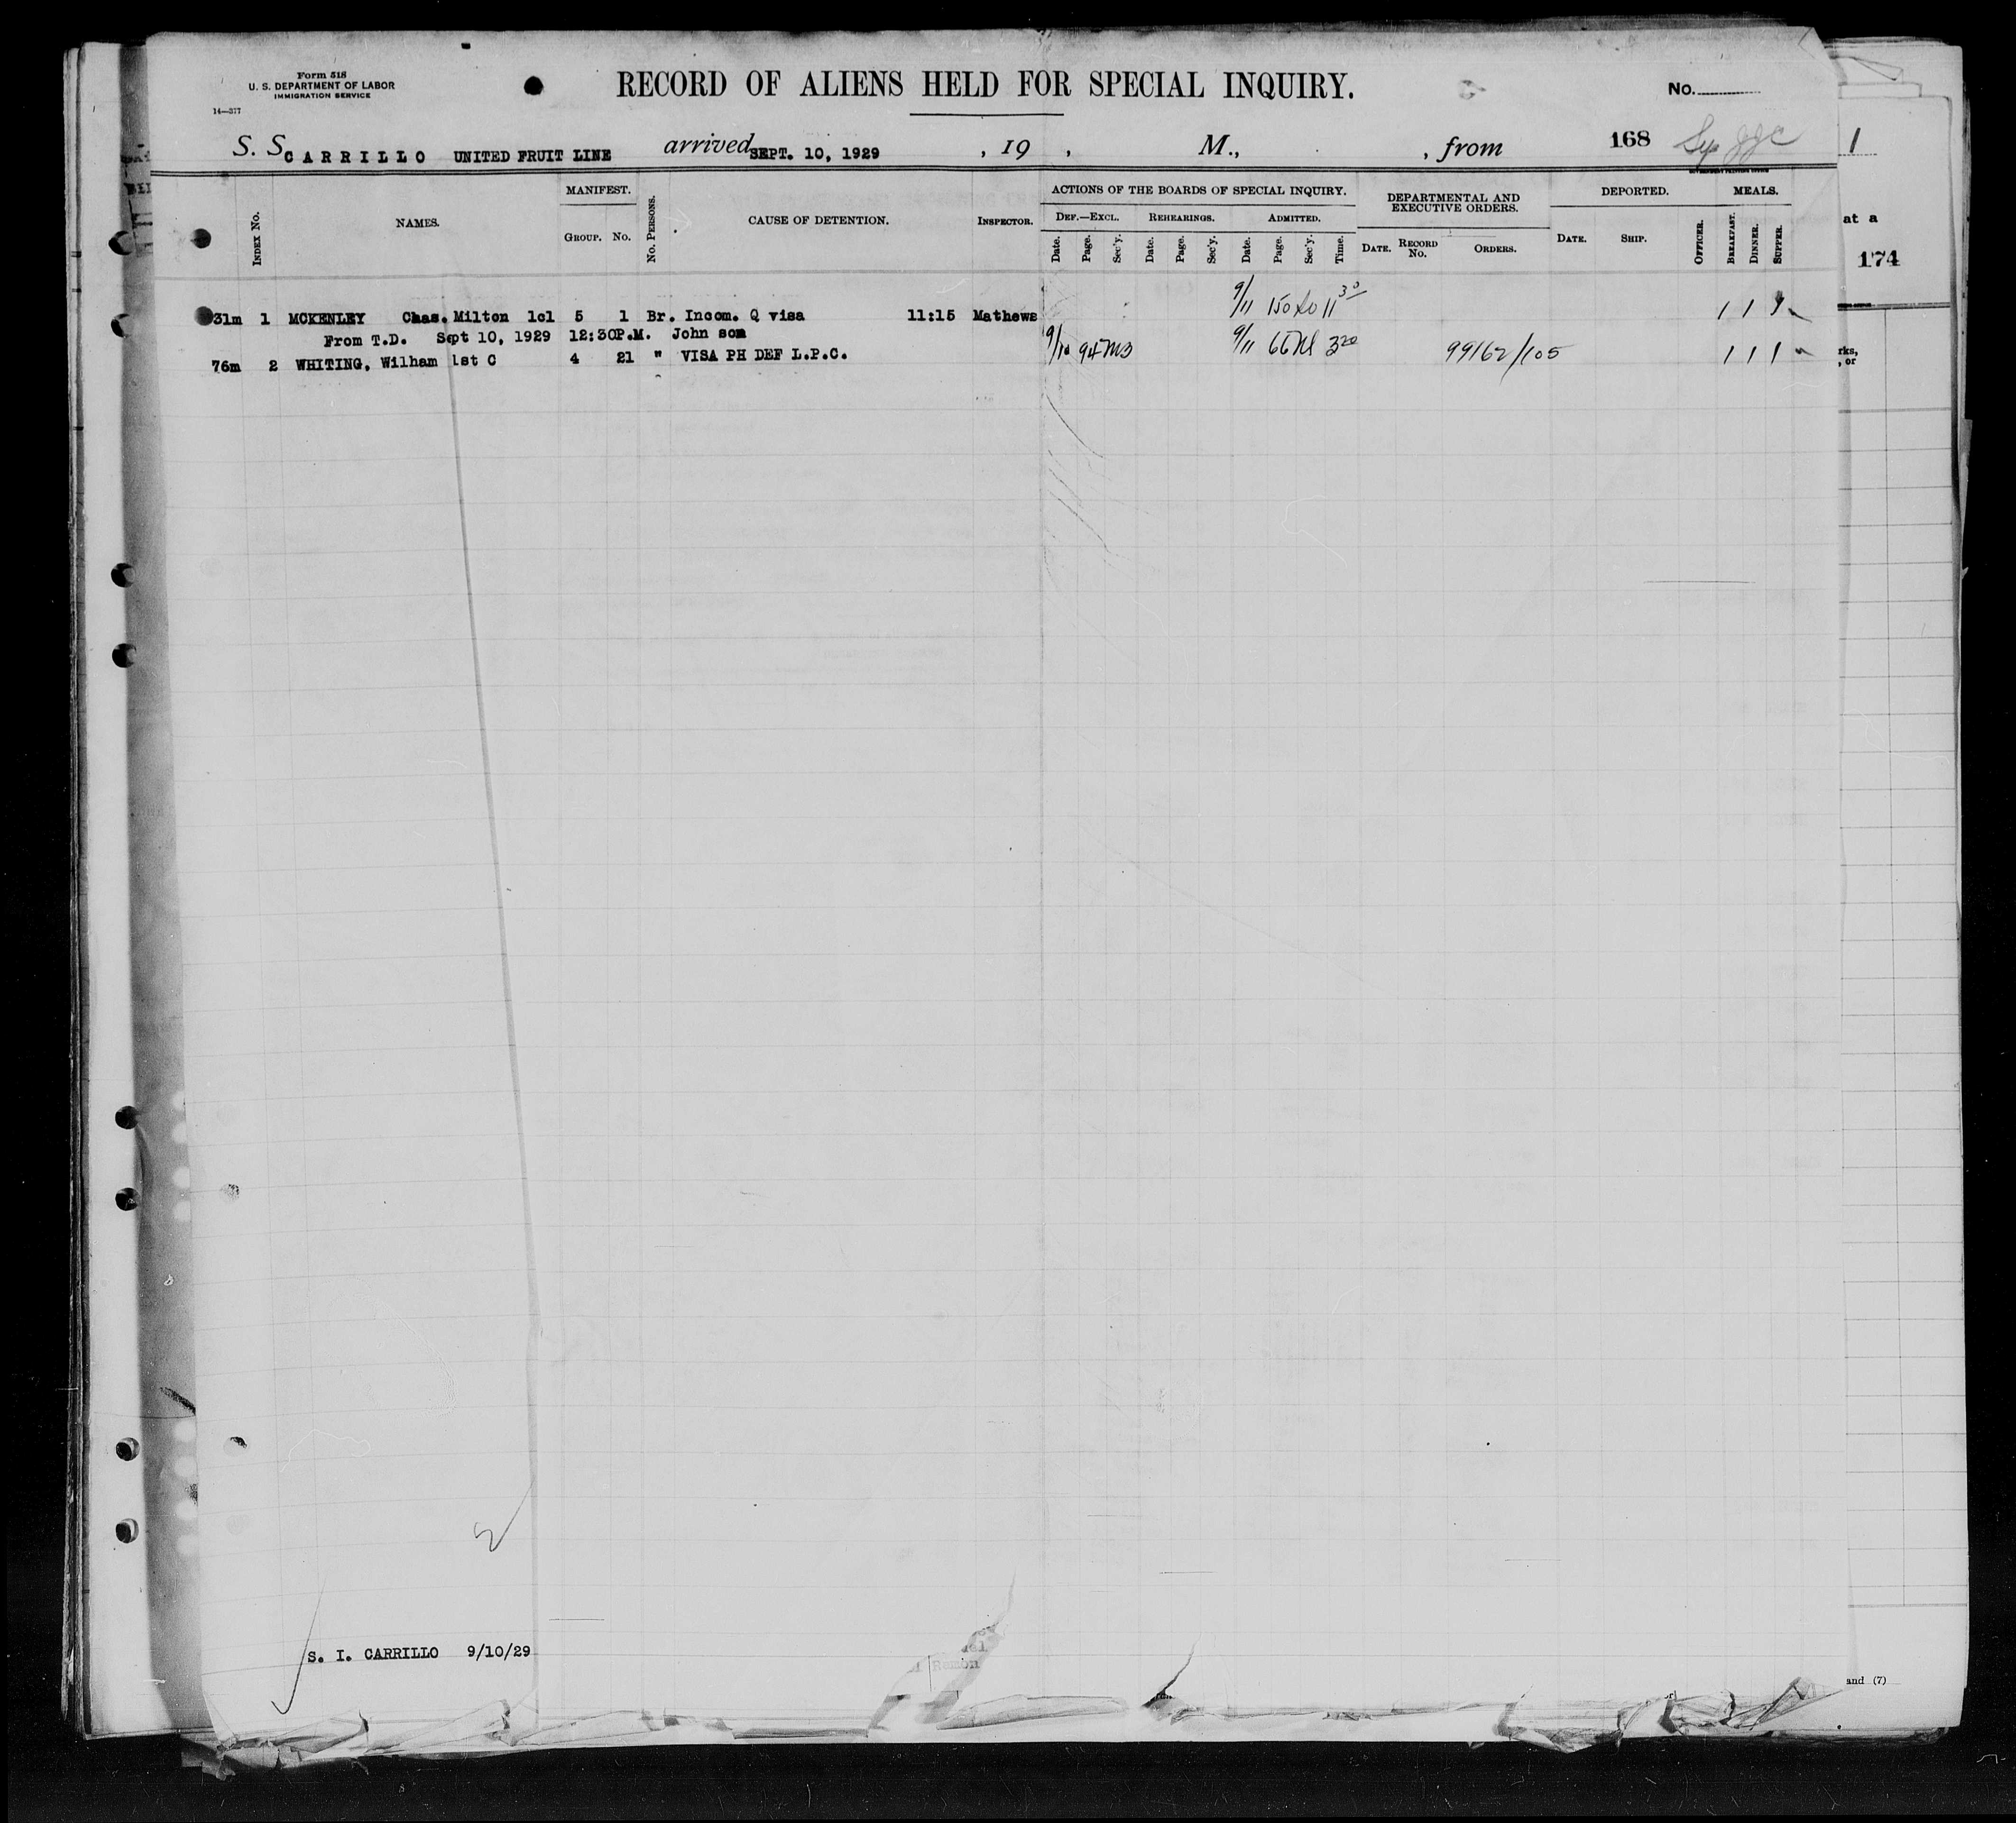 Form 518
U. S. DEPARTMENT OF LABOR
IMMIGRATION SERVICE
14—377
RECORD OF ALIENS HELD FOR SPECIAL INQUIRY.
No.
S. S. CARRILLO UNITED FRUIT LINE arrived SEPT. 10, 1929 , 19 , M., , from 168
1
MANIFEST.
ACTIONS OF THE BOARDS OF SPECIAL INQUIRY.
DEPARTMENTAL AND EXECUTIVE ORDERS.
DEPORTED.
MEALS.
INDEX No. NAMES. GROUP. No. No. PERSONS. CAUSE OF DETENTION. INSPECTOR.
DEF.—EXCL. REHEARINGS. ADMITTED.
Date. Page. Sec'y. Date. Page. Sec'y. Date. Page. Sec'y. Time. DATE. RECORD No. ORDERS. DATE. SHIP. OFFICER. BREAKFAST. DINNER. SUPPER.
at a
174
31m 1 MCKENLEY Chas. Milton 1cl 5 1 Br. Incom. Q visa 11:15 Mathews 9/11 150 11 30 1 1 1
From T.D. Sept 10, 1929 12:30P.M. John som
76m 2 WHITING, Wilham 1st C 4 21 " VISA PH DEF L.P.C. 9/10 94 MB 9/11 66 3 20 99162/105 1 1 1
rks,
, or
2
S. I. CARRILLO 9/10/29
Remon
and (7)